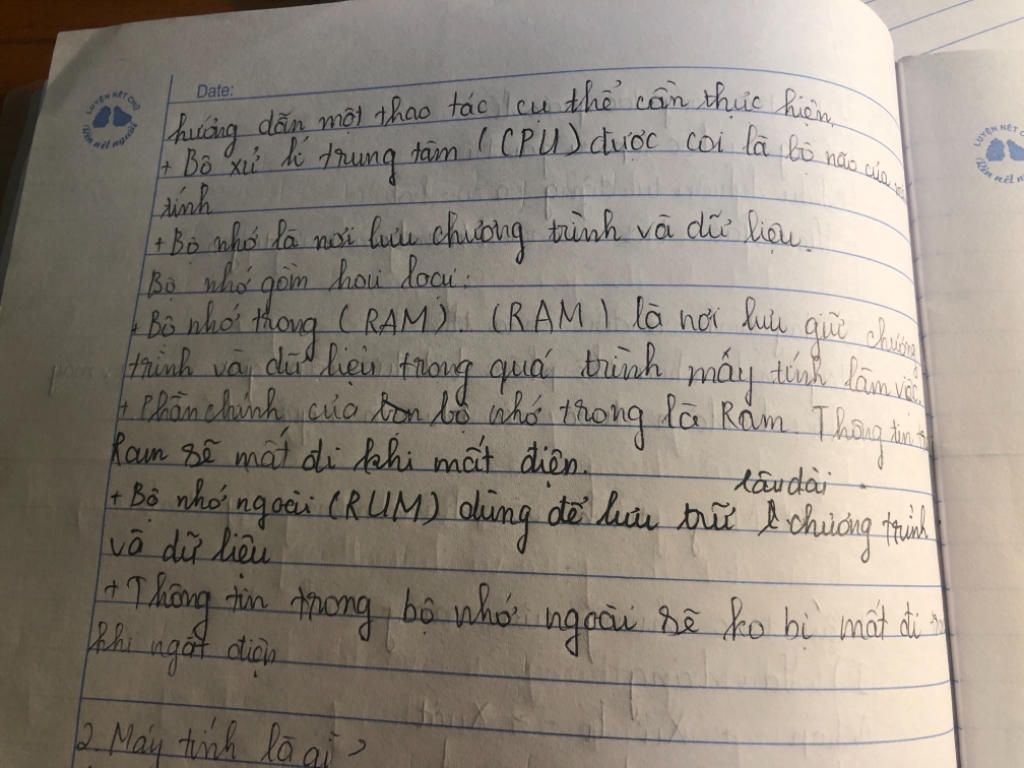 LUYỆN NÉT CHỮ
Rèn nết người
Date:
hướng dẫn một thao tác cụ thể cần thực hiện.
+ Bộ xử lí trung tâm (CPU) được coi là bộ não của
tính
+ Bộ nhớ là nơi lưu chương trình và dữ liệu.
Bộ nhớ gồm hai loại:
+ Bộ nhớ trong (RAM). (RAM) là nơi lưu giữ chương
trình và dữ liệu trong quá trình mấy tính làm việc.
+ Phần chính của bộ nhớ trong là Ram. Thông tin
Ram sẽ mất đi khi mất điện.
lâu dài
+ Bộ nhớ ngoài (RUM) dùng để lưu trữ chương trình
và dữ liệu
+ Thông tin trong bộ nhớ ngoài sẽ ko bị mất đi
khi ngắt điện
2. Máy tính là gì?
LUYỆN NÉT CH
Rèn nết ng